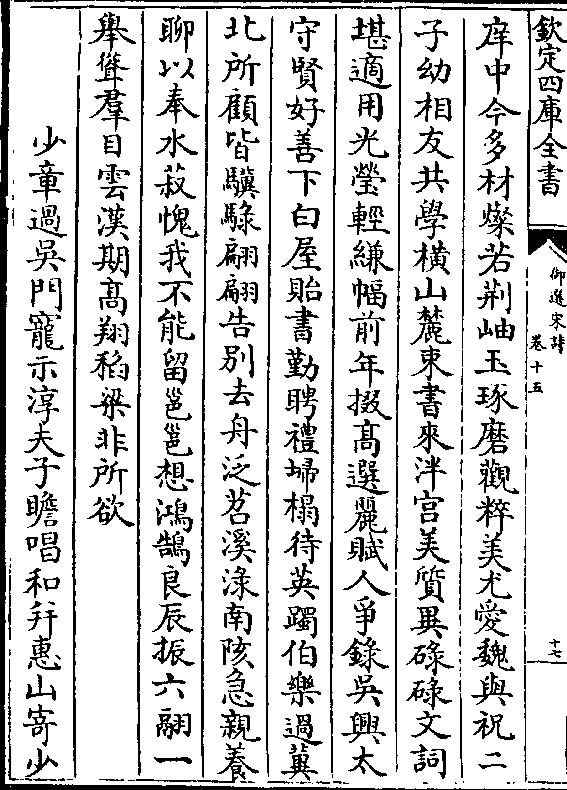 欽定四庫全書
御選宋詩
卷十五
十七
庠中今多材燦若荆岫玉琢磨觀粹美尤愛魏與祝二
子幼相友共學橫山麓東書來泮宫美質異碌碌文詞
堪適用光瑩輕縑幅前年掇髙選麗賦人爭錄吳興太
守賢好善下白屋貽書勤聘禮埽榻待英躅伯樂過冀
北所顧皆驥騄翩翩告别去舟泛苕溪渌南陔急親養
聊以奉水菽愧我不能留邕邕想鴻鵠良辰振六翮一
舉聳羣目雲漢期髙翔稻粱非所欲
少章過吳門寵示淳夫子瞻唱和幷惠山寄少